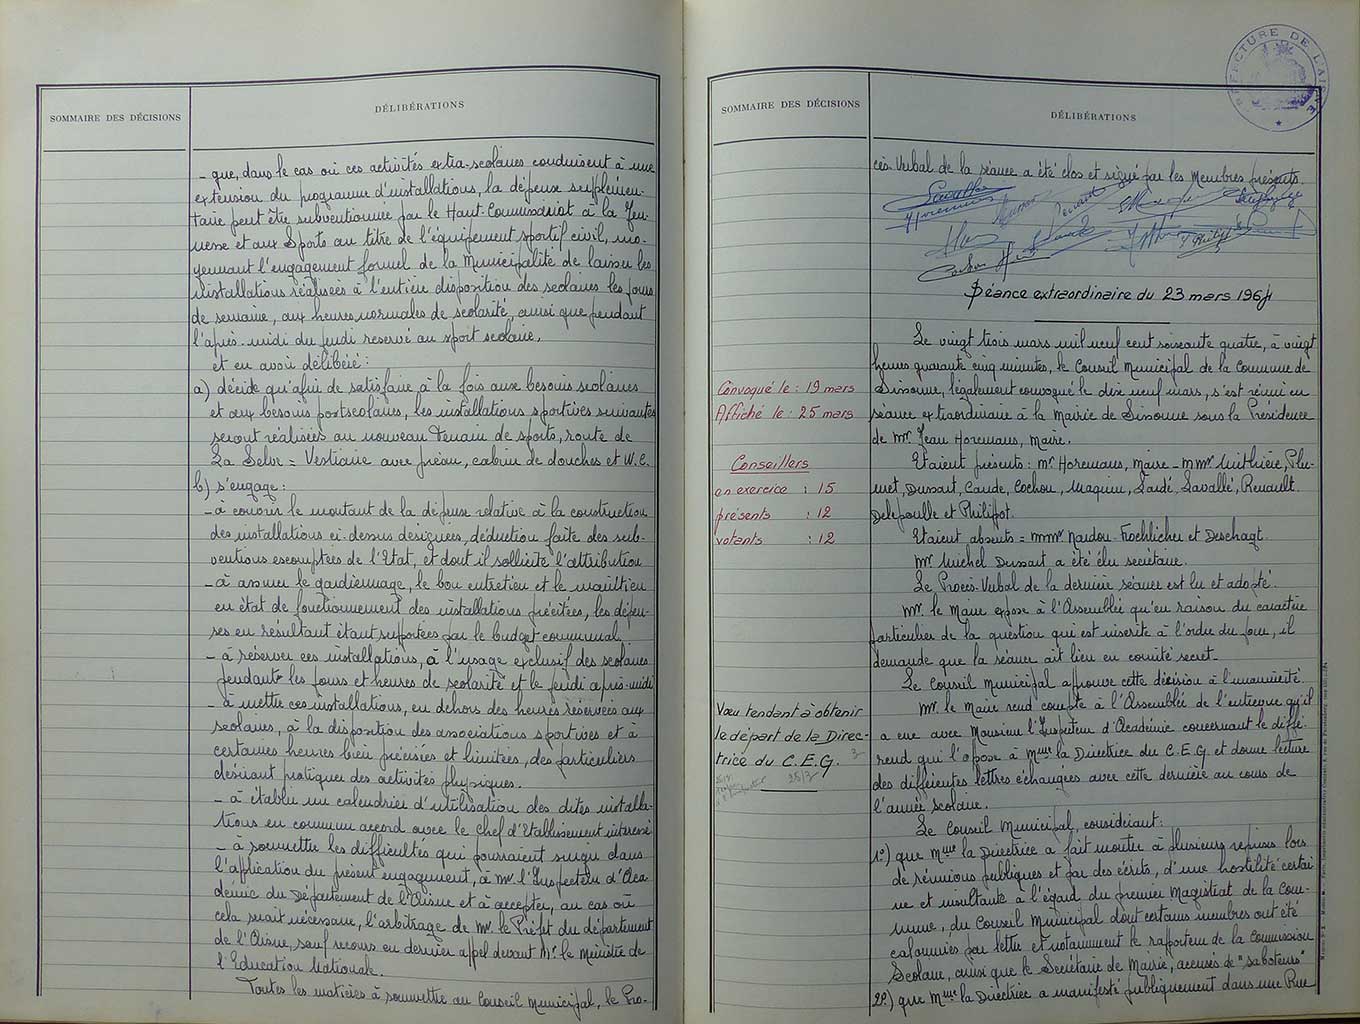 SOMMAIRE DES DÉCISIONS
DÉLIBÉRATIONS
- que, dans le cas où ces activités extra-scolaires conduisent à une
extension du programme d'installations, la dépense supplémen-
taire peut être subventionnée par le Haut-Commissariat à la Jeu-
nesse et aux Sports au titre de l'équipement sportif civil, mo-
yennant l'engagement formel de la Municipalité de laisser les
installations réalisées à l'entière disposition des scolaires les jours
de semaine, aux heures normales de scolarité, ainsi que pendant
l'après-midi du jeudi reservé au sport scolaire,
et en avoir délibéré :
a) décide qu'afin de satisfaire à la fois aux besoins scolaires
et aux besoins postscolaires, les installations sportives suivantes
seront réalisées au nouveau Terrain de sports, route de
La Selve = Vestiaire avec préau, cabine de douches et W.C.
b) s'engage :
- à couvrir le montant de la dépense relative à la construction
des installations ci-dessus désignées, déduction faite des sub-
ventions escomptées de l'Etat, et dont il sollicite l'attribution
- à assurer le gardiennage, le bon entretien et le maintien
en état de fonctionnement des installations précitées, les dépen-
ses en résultant étant supportées par le budget communal.
- à réserver ces installations, à l'usage exclusif des scolaires
pendant les jours et heures de scolarité et le jeudi après-midi
- à mettre ces installations, en dehors des heures réservées aux
scolaires, à la disposition des associations sportives et à
certaines heures bien précisées et limitées, des particuliers
désirant pratiquer des activités physiques.
- à établir un calendrier d'utilisation des dites installa-
tions en commun accord avec le chef d'Etablissement intéressé
- à soumettre les difficultés qui pourraient surgir dans
l'application du présent engagement, à Mr. l'Inspecteur d'Aca-
démie du Département de l'Aisne et à accepter, au cas où
cela serait nécessaire, l'arbitrage de Mr. le Préfet du département
de l'Aisne, sauf recours en dernier appel devant Mr. le Ministre de
l'Education Nationale.
Toutes les matières à soumettre au Conseil Municipal, le Pro-
SOMMAIRE DES DÉCISIONS
DÉLIBÉRATIONS
PRÉFECTURE DE L'AISNE
cès-Verbal de la séance a été clos et signé par les Membres présents.
Séance extraordinaire du 23 mars 1964
Le vingt trois mars mil neuf cent soixante quatre, à vingt
heures quarante cinq minutes, le Conseil Municipal de la Commune de
Convoqué le : 19 mars
Sissonne, légalement convoqué le dix neuf mars, s'est réuni en
Affiché le : 25 mars
séance extraordinaire à la Mairie de Sissonne sous la Présidence
de Mr. Jean Horemans, Maire.
Conseillers
Etaient présents : Mr. Horemans, Maire - MMrs Mithière, Plu-
en exercice : 15
met, Dussart, Caude, Cochon, Maquin, Sardé, Lavallé, Renault.
présents : 12
Delepoulle et Philipot.
votants : 12
Etaient absents = MMrs Nardou. Froehlicher et Deschagt.
Mr. Michel Dussart a été élu secrétaire.
Le Procès-Verbal de la dernière séance est lu et adopté.
Mr. le Maire expose à l'Assemblée qu'en raison du caractère
particulier de la question qui est inscrite à l'ordre du jour, il
demande que la séance ait lieu en comité secret.
Le Conseil Municipal approuve cette décision à l'unanimité.
Mr. le Maire rend compte à l'Assemblée de l'entrevue qu'il
Vœu tendant à obtenir
a eue avec Monsieur l'Inspecteur d'Académie concernant le diffé-
le départ de la Direc-
rend qui l'oppose à Mme la Directrice du C.E.G. et donne lecture
trice du C.E.G.
des différentes lettres échangées avec cette dernière au cours de
25/3
l'année scolaire.
Le Conseil Municipal, considérant :
1º) que Mme la Directrice a fait montre à plusieurs reprises lors
de réunions publiques et par des écrits, d'une hostilité certai-
ne et insultante à l'égard du premier Magistrat de la Com-
mune, du Conseil Municipal dont certains membres ont été
calomniés par lettre et notamment le rapporteur de la Commission
Scolaire, ainsi que le Secrétaire de Mairie, accusés de "saboteurs"
2º) que Mme la Directrice a manifesté publiquement dans une Rue